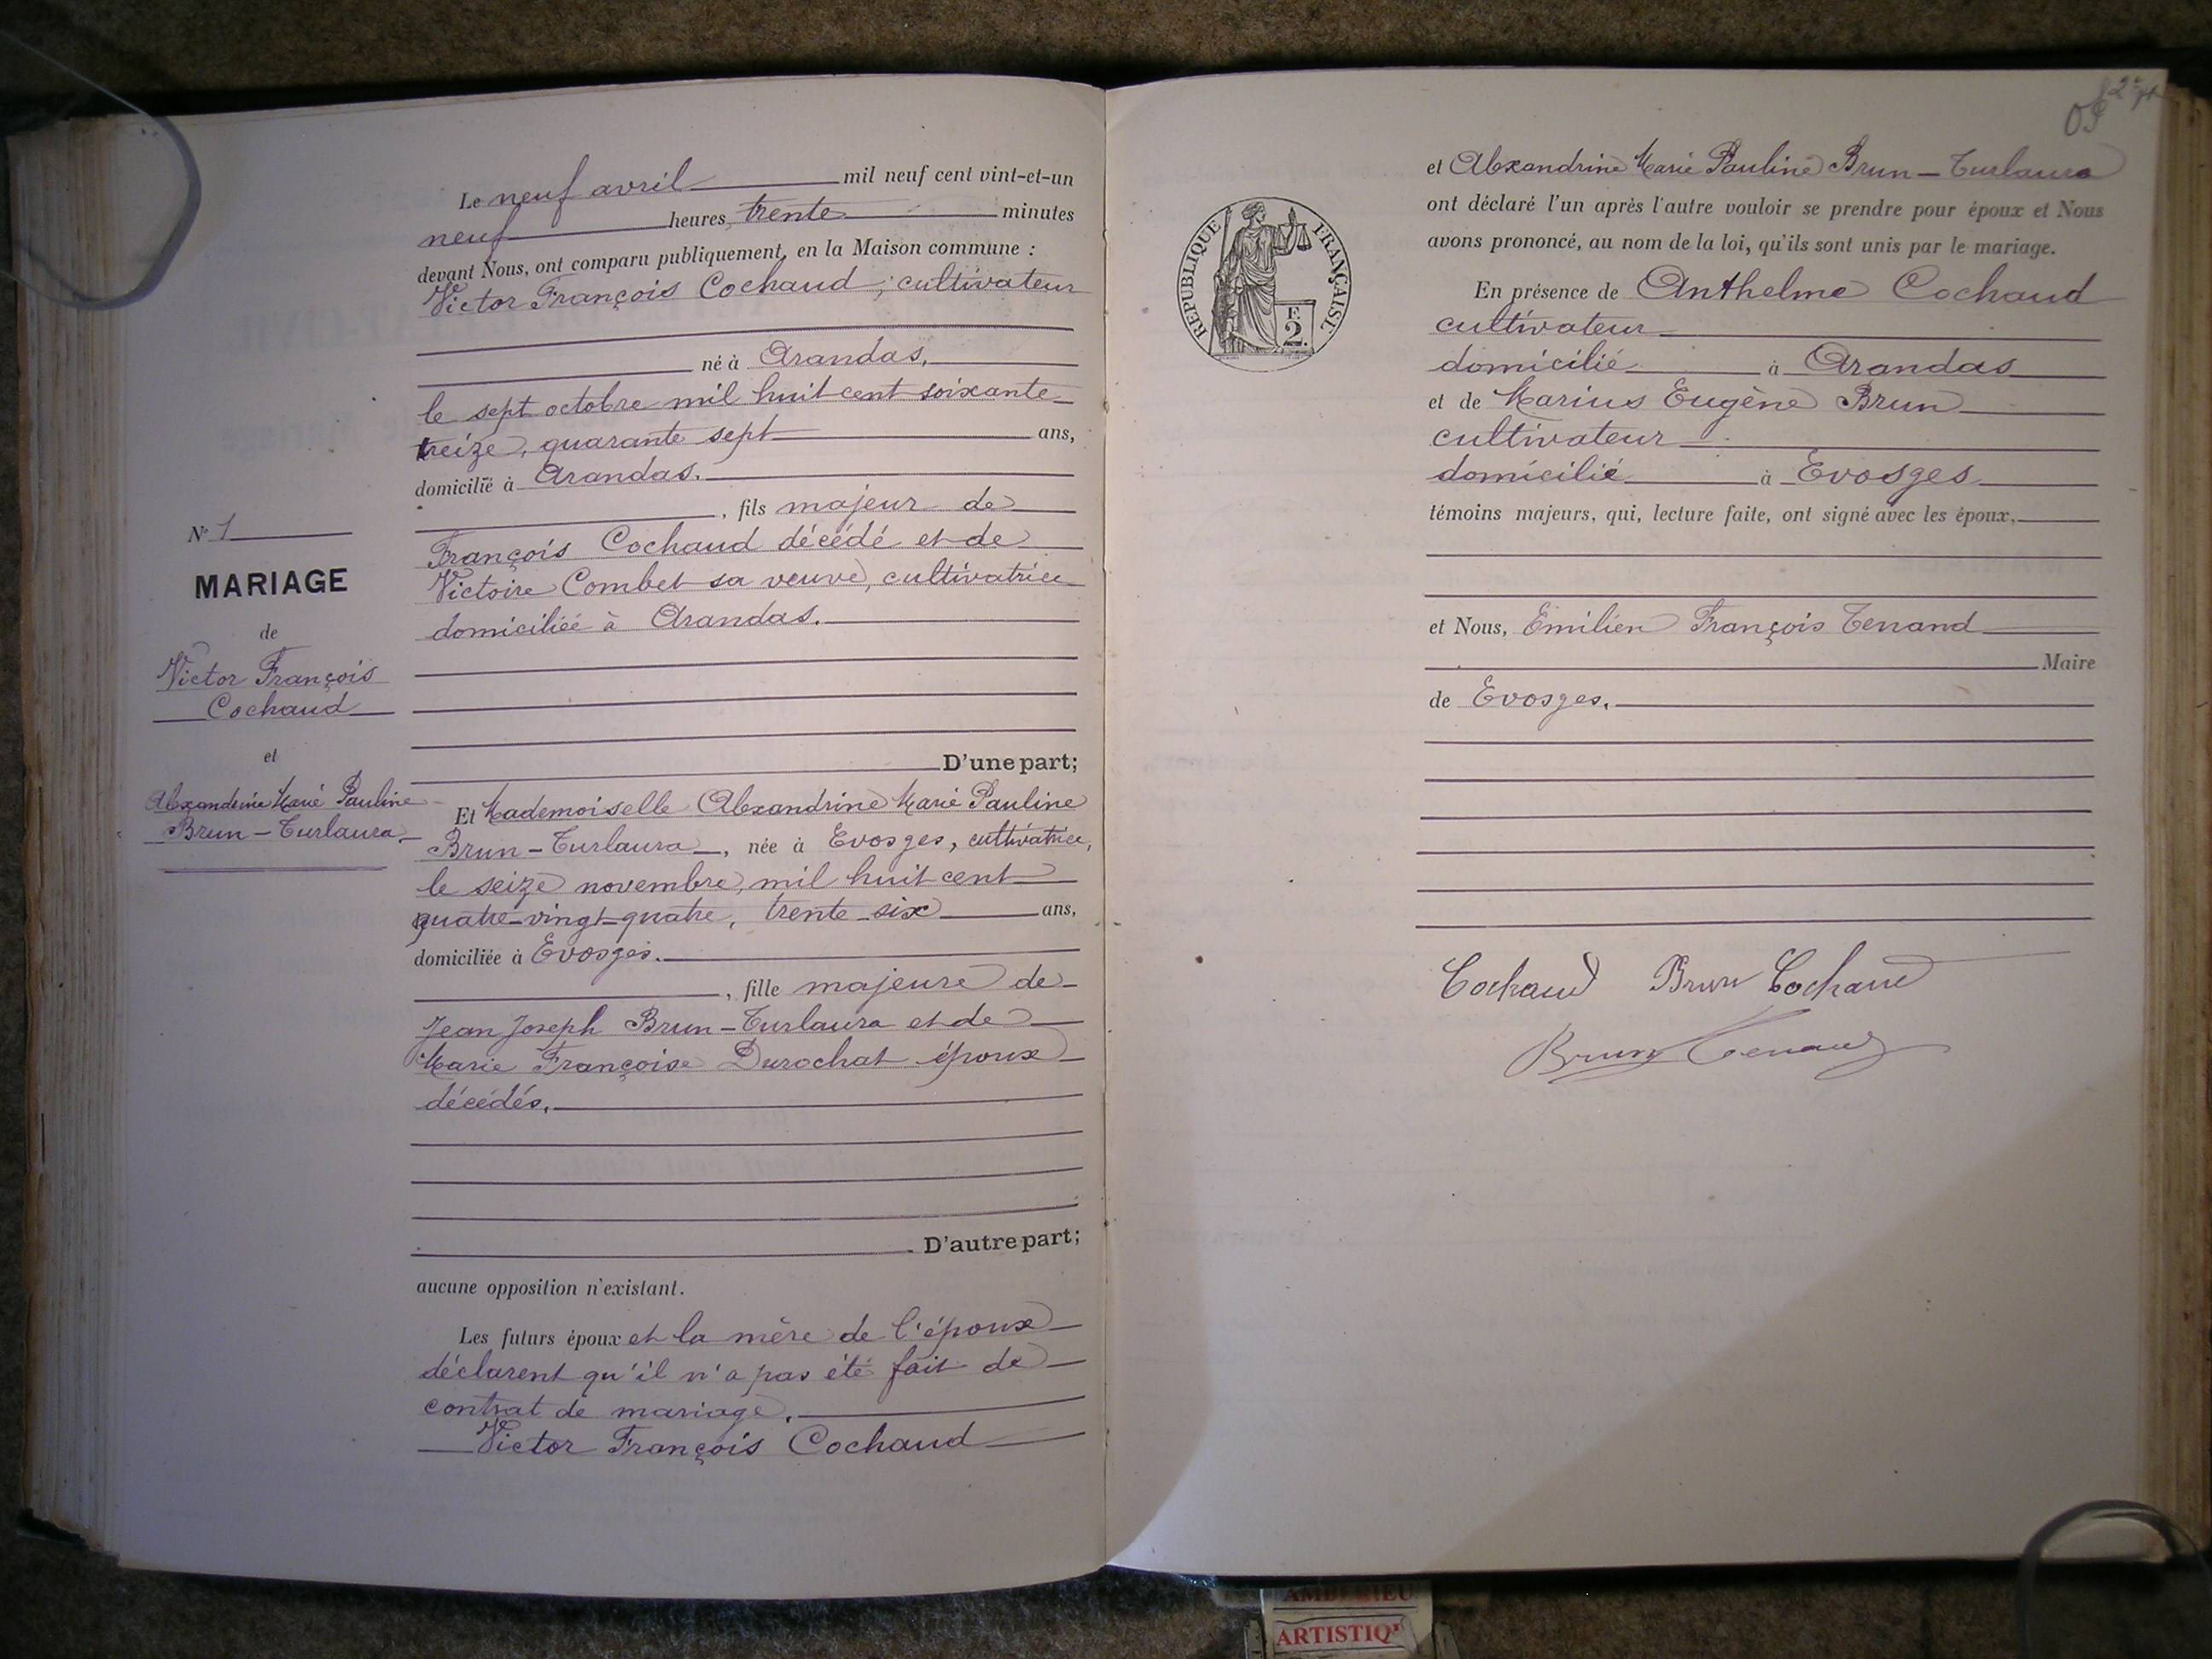 Le neuf avril mil neuf cent vint-et-un
neuf heures, trente minutes
devant Nous, ont comparu publiquement, en la Maison commune :
Victor François Cochaud, cultivateur
né à Arandas,
le sept octobre mil huit cent soixante
treize, quarante sept ans,
domicilié à Arandas.
, fils majeur de
François Cochaud décédé et de
Victoire Combet sa veuve, cultivatrice
domiciliée à Arandas.
D'une part;
N° 1
MARIAGE
de
Victor François
Cochaud
et
Alexandrine Marie Pauline
Brun-Turlaura
Et Mademoiselle Alexandrine Marie Pauline
Brun-Turlaura, née à Evosges, cultivatrice,
le seize novembre, mil huit cent
quatre-vingt-quatre, trente-six ans,
domiciliée à Evosges.
, fille majeure de
Jean Joseph Brun-Turlaura et de
Marie Françoise Durochat époux
décédés.
D'autre part;
aucune opposition n'existant.
Les futurs époux et la mère de l'époux
déclarent qu'il n'a pas été fait de
contrat de mariage.
Victor François Cochaud
et Alexandrine Marie Pauline Brun-Turlaura
ont déclaré l'un après l'autre vouloir se prendre pour époux et Nous
avons prononcé, au nom de la loi, qu'ils sont unis par le mariage.
REPUBLIQUE FRANÇAISE
F.
2.
En présence de Anthelme Cochaud
cultivateur
domicilié à Arandas
et de Marius Eugène Brun
cultivateur
domicilié à Evosges
témoins majeurs, qui, lecture faite, ont signé avec les époux,
et Nous, Emilien François Tenand
Maire
de Evosges.
Cochaud Brun Cochaud
Brun Tenand
AMBERIEU
ARTISTIQ